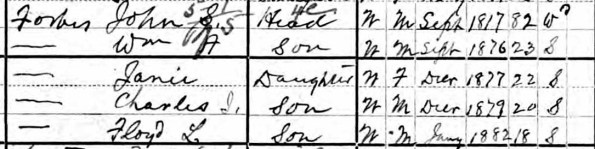 Forbes John S. Head W M Sept 1817 82 Wd
— Wm F Son W M Sept 1876 23 S
— Janie Daughter W F Decr 1877 22 S
— Charles J. Son W M Decr 1879 20 S
— Floyd L. Son W M Jany 1882 18 S